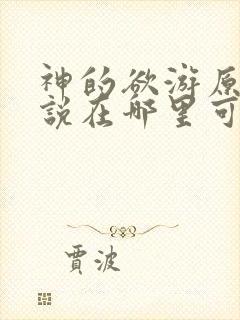 神的欲游原
說在哪里可
賈波